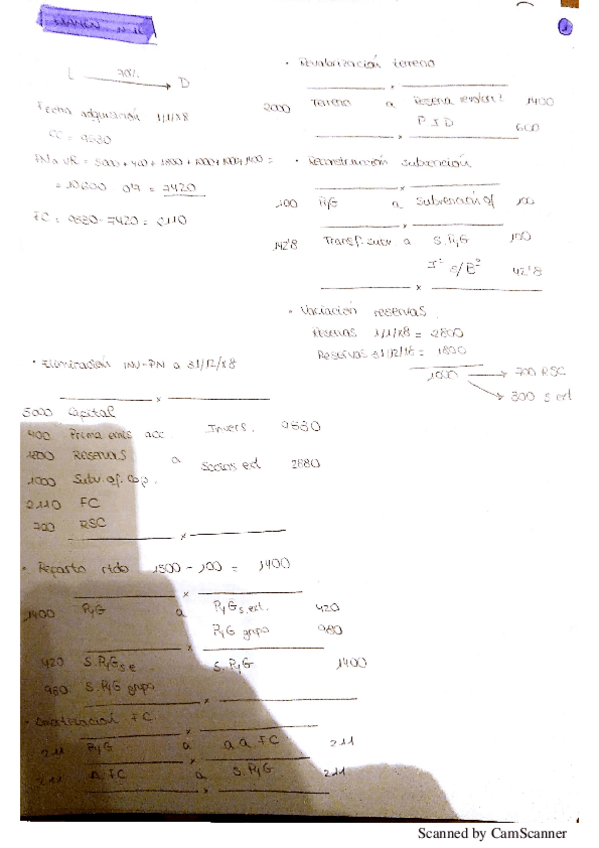 L 70% D
Fecha adquisición 1/1/x8
CC = 9530
PN a VR = 5000 + 400 + 1800 + 1000 + 1000 + 1400 =
= 10600 0'7 = 7420
FC = 9530 - 7420 = 2110
· Eliminación INV-PN a 31/12/x8
x
5000 Capital
400 Prima emis acc. Invers. 9530
1800 Reservas a
1000 Subv. of. cap. Socios ext 2880
2110 FC
700 RSC
x
· Reparto rtdo 1500 - 100 = 1400
x
1400 PyG a PyG s.ext. 420
PyG grupo 980
x
420 S. PyG s.e. S. PyG 1400
980 S. PyG grupo
x
FC
x
211 PyG a a a FC 211
x
211 a. FC a S. PyG 211
x
1
· Revalorización terreno
x
2000 Terreno a Reserva 1400
P I D 600
x
· Reconstrucción subvención
x
100 PyG a Subvención of 100
x
142'8 Transf. subv. a S. PyG 100
s/Bº 42'8
x
· Variación reservas
Reservas 1/1/x8 = 2800
Reservas 31/12/16 = 1800
1000 700 RSC
300 s ext
Scanned by CamScanner